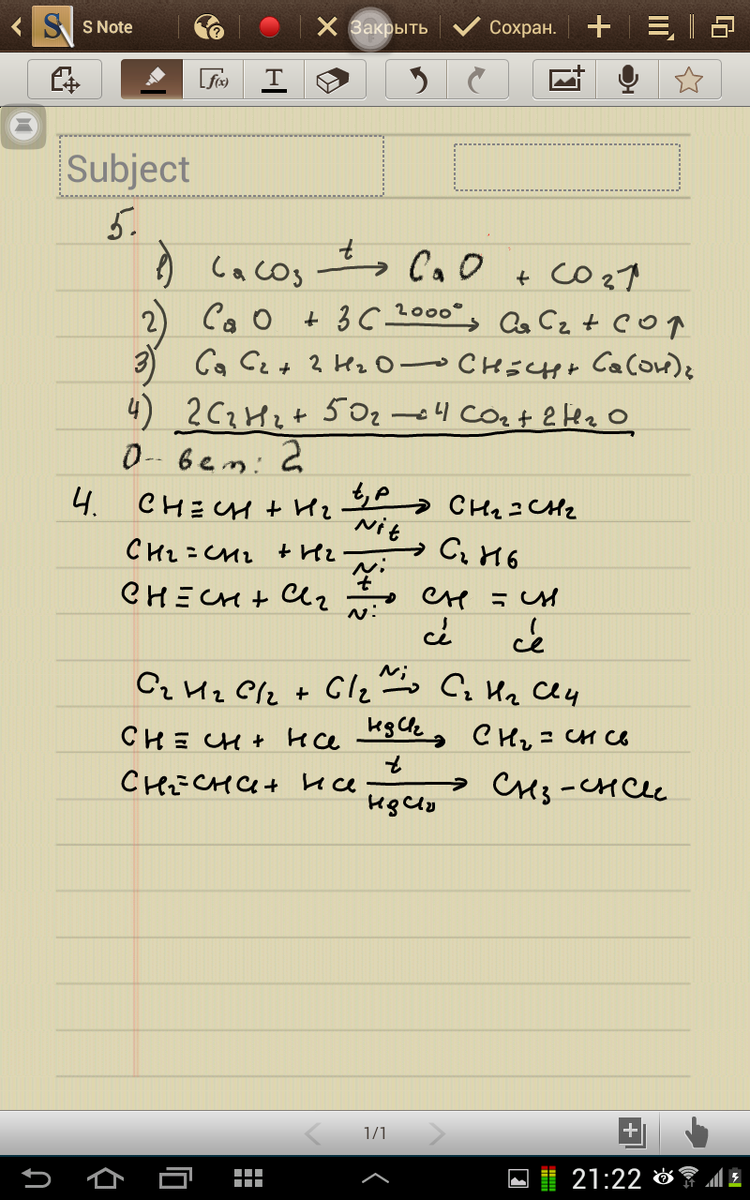 S Note
Закрыть
Сохран.
f(x)
T
Subject
5.
1) CaCO3 —t→ CaO + CO2↑
2) CaO + 3C —2000°→ CaC2 + CO↑
3) CaC2 + 2H2O → CH≡CH + Ca(OH)2
4) 2C2H2 + 5O2 → 4CO2 + 2H2O
О-вет: 2
4. CH≡CH + H2 —t,p/Ni→ CH2=CH2
CH2=CH2 + H2 —t/Ni→ C2H6
CH≡CH + Cl2 —t/Ni→ CH = CH
Cl Cl
C2H2Cl2 + Cl2 —Ni→ C2H2Cl4
CH≡CH + HCl —HgCl2→ CH2=CHCl
CH2=CHCl + HCl —t/HgCl2→ CH3-CHCl2
1/1
21:22